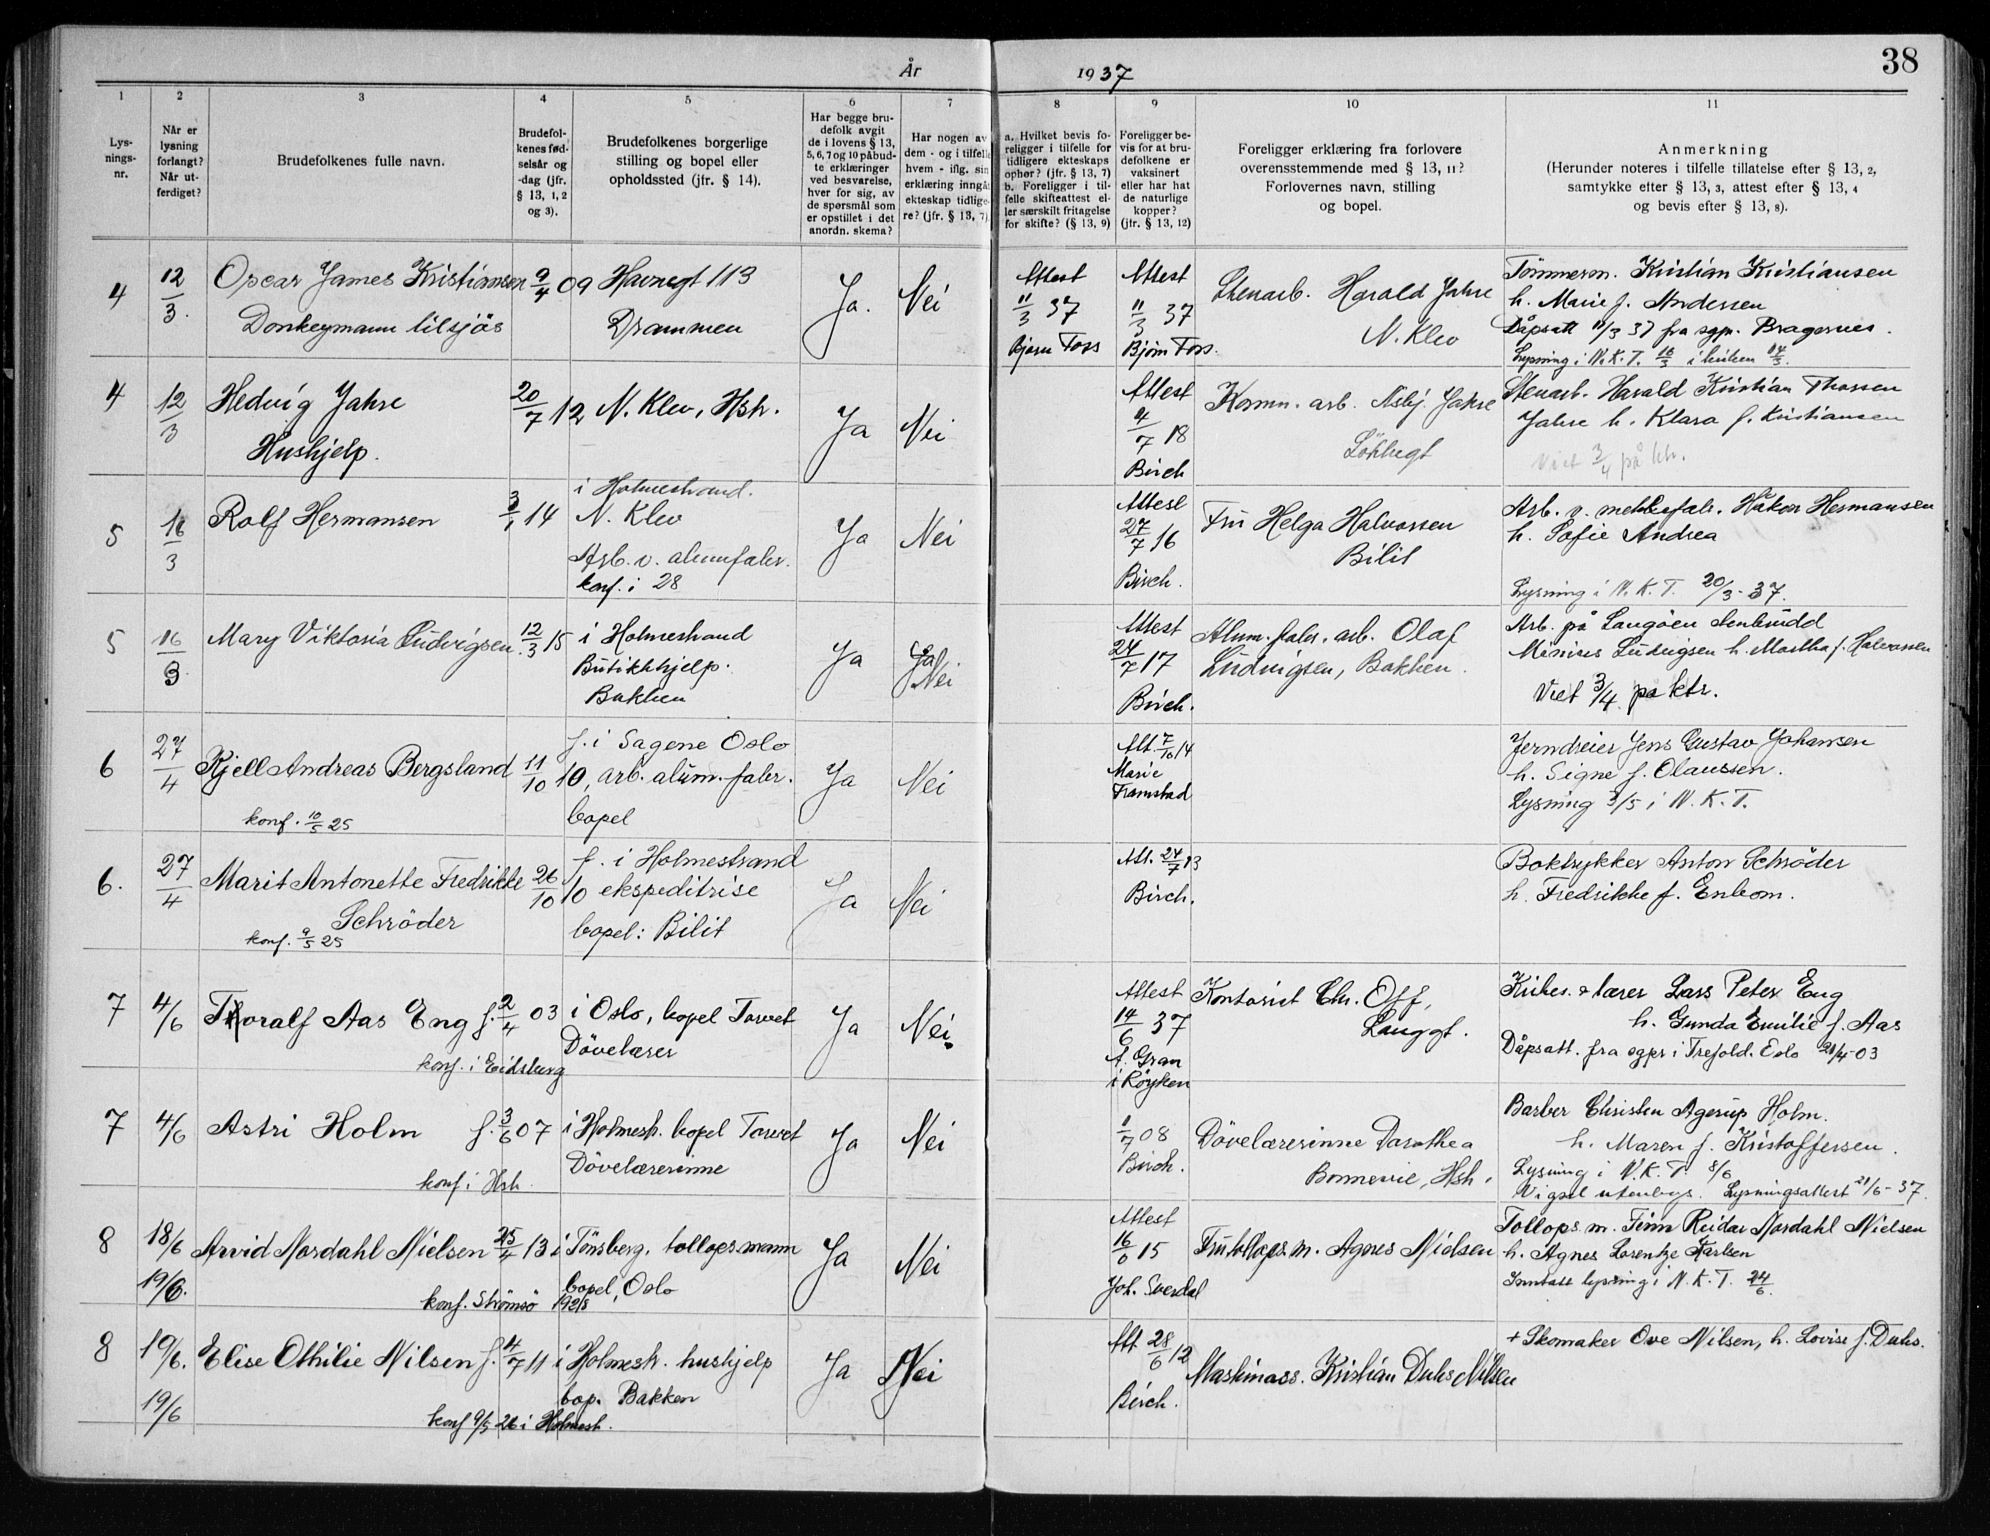 38
År 1937
1 2 3 4 5 6 7 8 9 10 11
Lys-
nings-
nr.
Når er
lysning
forlangt?
Når ut-
ferdiget?
Brudefolkenes fulle navn.
Brudefol-
kenes fød-
selsår og
-dag (jfr.
§ 13, 1, 2
og 3).
Brudefolkenes borgerlige
stilling og bopel eller
opholdssted (jfr. § 14).
Har begge bru-
defolk avgit
de i lovens § 13,
5, 6, 7 og 10 påbud-
te erklæringer
ved besvarelse,
hver for sig, av
de spørsmål som
er opstillet i det
anordn. skema?
Har nogen av
dem - og i tilfelle
hvem - iflg. sin
erklæring inngått
ekteskap tidlige-
re? (jfr. § 13, 7)
a. Hvilket bevis fo-
religger i tilfelle for
tidligere ekteskaps
ophør? (jfr. § 13, 7)
b. Foreligger i til-
felle skifteattest el-
ler særskilt fritagelse
for skifte? (§ 13, 9)
Foreligger be-
vis for at bru-
defolkene er
vaksinert
eller har hat
de naturlige
kopper?
(jfr. § 13, 12)
Foreligger erklæring fra forlovere
overensstemmende med § 13, 11?
Forlovernes navn, stilling
og bopel.
Anmerkning
(Herunder noteres i tilfelle tillatelse efter § 13, 2,
samtykke efter § 13, 3, attest efter § 13, 4
og bevis efter § 13, 8).
4 12/3 Oscar James Kristiansen 9/4 09 Havnegt 113 Ja. Nei
Donkeymann tilsjøs Drammen
Attest 11/3 37 Bjørn Foss
Attest 11/3 37 Bjørn Foss.
Stenarb. Harald Jahre
N. Klev
Tømmerm. Kristian Kristiansen
h. Marie f. Andersen
Dåpsatt 11/3 37 fra sgpr. Bragernes.
Lysning i N. K. T. 16/3
4 12/3 Hedvig Jahre 20/7 12 N. Klev, Hstr. Ja Nei
Hushjelp.
Attest 4/7 18 Birch
Komm. arb. Asbj. Jahre
Løkkegt
Stenarb. Harald Kristian Thossen
Jahre h. Klara f. Kristiansen
Viet 3/4 på ktr.
5 16/3 Rolf Hermansen 3/1 14 i Holmestrand.
N. Klev
Arb. v. alumfabr.
konf. i 28
Ja Nei
Attest 27/7 16 Birch.
Fru Helga Halvorsen
Bilit
Arb. v. mekkefabr. Håkon Hermansen
h. Sofie Andrea
Lysning i N. K. T. 20/3 - 37.
5 16/3 Mary Viktoria Ludvigsen. 12/3 15 i Holmestrand
Butikkhjelp.
Bakken
Ja Ja Nei
Attest 24/7 17 Birch.
Alum. fabr. arb. Olaf
Ludvigsen, Bakken.
Arb. på Langøen stenbrudd
Minius Ludvigsen h. Martha f. Halvorsen
Viet 3/4 på ktr.
6 27/4 Kjell Andreas Bergsland 11/10 10, f. i Sagene Oslo
arb. alum. fabr.
bopel
konf. 10/5 25
Ja Nei
Att. 7/10 14
Marie
Framstad
Jerndreier Jens Gustav Johansen
h. Signe f. Olaussen.
Lysning 3/5 i N. K. T.
6. 27/4 Marit Antonette Fredrikke 26/10 10 f. i Holmestrand
Schrøder ekspeditrise
konf. 9/5 25 bopel: Bilit
Ja Nei
Att. 24/7 13
Birch.
Boktrykker Anton Schrøder
h. Fredrikke f. Enbom.
7 4/6 Thoralf Aas Eng f. 2/4 03 i Oslo, bopel Torvet
Døvelærer
konf. i Eidsberg
Ja Nei.
Attest 14/6 37 A. Gran
i Røyken
Kontorist Chr. Off,
Langgt.
Kirkes. & lærer Lars Peter Eng
h. Gunda Emilie f. Aas
Dåpsatt. fra sgpr i Trefold. Oslo 21/4-03
7 4/6 Astri Holm f. 3/6 07 i Holmestr. bopel Torvet
Døvelærerinne
konf. i Hstr.
Ja Nei
1/7 08 Birch.
Døvelærerinne Dorothea
Bonnevie, Hstr.
Barber Christen Agerup Holm.
h. Maren f. Kristoffersen.
Lysning i N. K. T. 8/6
Vigsel utenbys. Lysningsattest 21/6 - 37.
8 18/6 Arvid Nordahl Nielsen 25/4 13 i Tønsberg. tollopsmann
19/6. bopel, Oslo
konf. Strømsø 1928
Ja Nei
Attest 16/6 15
Joh. Sverdal
Fru tollops m. Agnes Nielsen
Tollops m. Finn Reidar Nordahl Nielsen
h. Agnes Lorentze Karlsen
Inntatt lysning i N. K. T. 24/6.
8 19/6. Elise Othilie Nilsen f. 4/7 11 i Holmestr. hushjelp
19/6 bop. Bakken
konf 9/5 26 i Holmestr.
Ja Nei
Att 28/6 12
Birch.
Maskinass. Kristian Duhs Nilsen
+ Skomaker Ove Nilsen, h. Lovise f. Duhs.